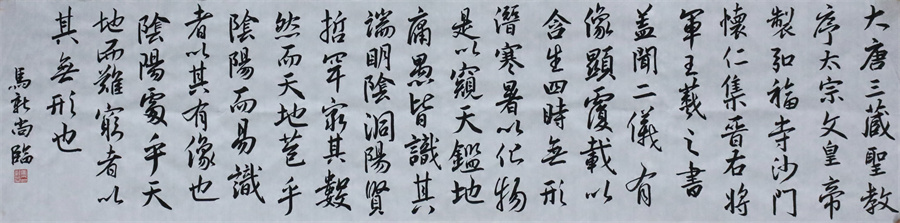 大唐三藏聖教
序太宗文皇帝
製弘福寺沙門
懷仁集晉右將
軍王羲之書
蓋聞二儀有
像顯覆載以
含生四時無形
潛寒暑以化物
是以窺天鑑地
庸愚皆識其
端明陰洞陽賢
哲罕窮其數
然而天地苞乎
陰陽而易識
者以其有像也
陰陽處乎天
地而難窮者以
其無形也
馬新尚臨